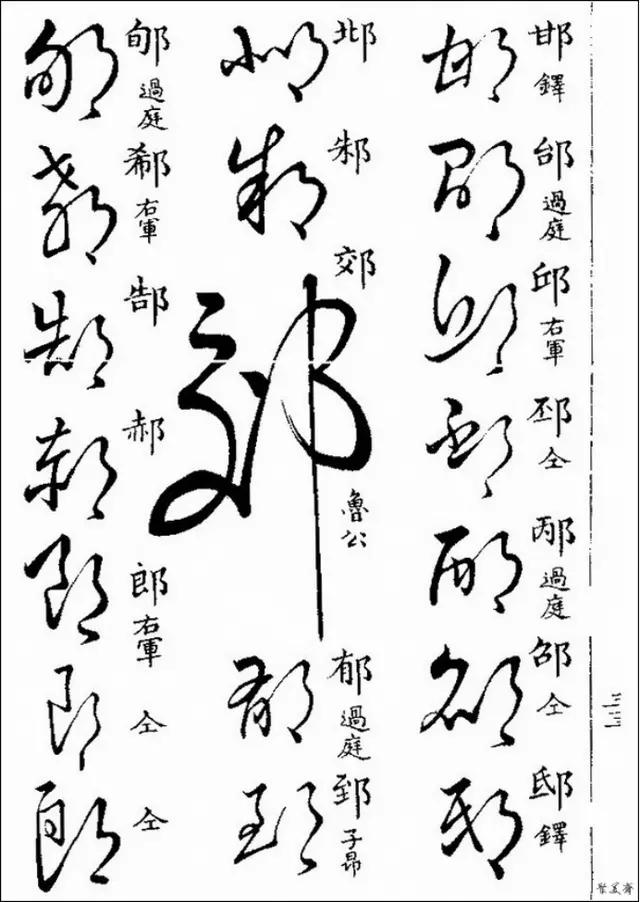 邯 鐸
邰 過庭
邱 右軍
邳 仝
邴 過庭
邵 仝
邸 鐸
邶
邾
郊 魯公
郁 過庭
郅 子昂
郇 過庭
郗 右軍
郜
郝
郎 右軍
仝
仝